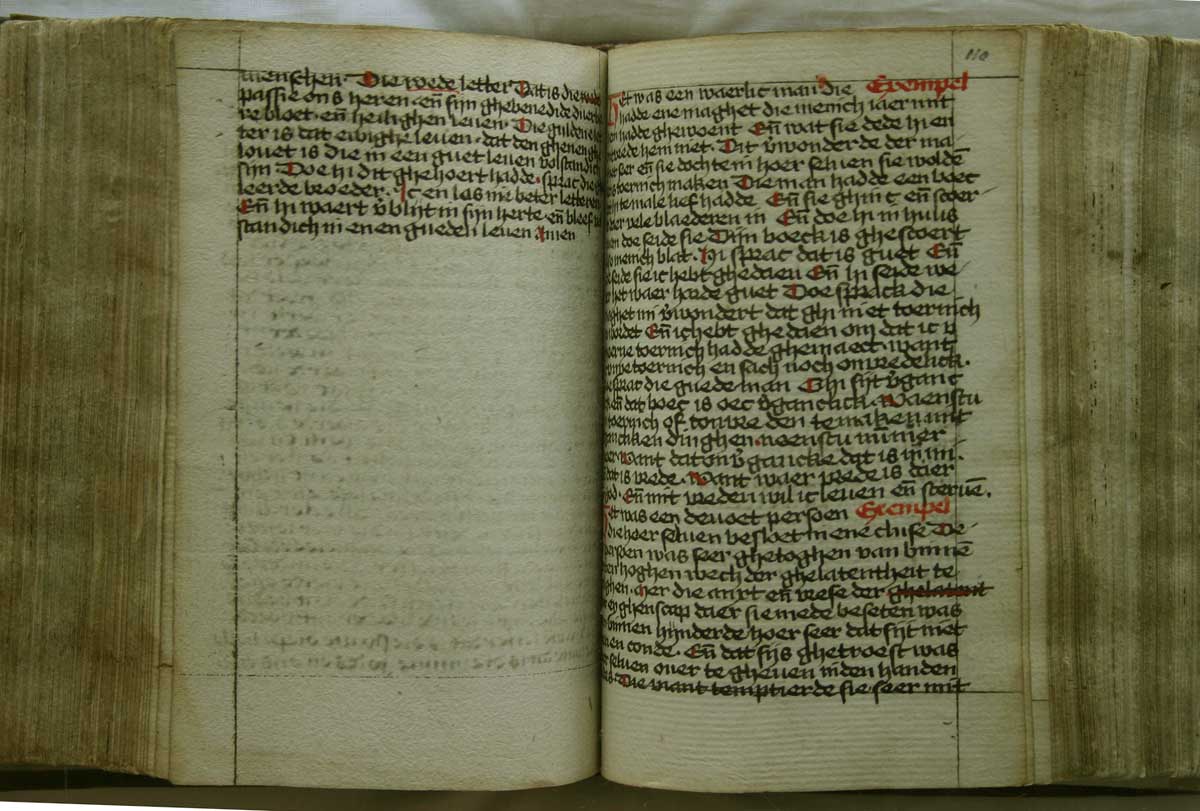 menschen. Die rode letter Dat is die
passie ons heren. eñ sijn ghebenedide
re bloet. eñ heilighen leuen. Die gulden
ter is dat ewighe leuen. dat den ghenen
louet is die in een guet leuen volstandich
sijn Doe hi dit ghehoert hadde. sprac die
leerde broeder. Ic en las nie beter letteren
Eñ hi waert v̉blijt in sijn herte. eñ bleef
standich in enen gueden leuen amen
110
Et was een waerlic man die Exempel
hadde ene maghet die menich iaer mit
hadde ghewoent Eñ wat sie dede hi en
hem niet. Dit v̉wonderde der ma
seer eñ sie dochte in hoer seluen sie wolde
toernich maken Die man hadde een boec
te male lief hadde. Eñ sie ghinc eñ scoer
vele blaederen in Eñ doe hi in huus
doe seide sie Dijn boeck is ghescoert
menich blat. Hi sprac dat is guet Eñ
seide sie ic hebt ghedaen Eñ hi seide we
het waer harde guet Doe sprack die
mi v̉wondert dat ghi niet toernich
wordet Eñ ic hebt ghedaen om dat ic v
gerne toernich hadde ghemaect. want
toernich en sach noch onuredelick.
sprac die guede man Ghi sijt v̉ganc
eñ dat boec is oec v̉ganclick. Waenstu
toernich of tonvreden te maken mit
dinghen. neenstu nummer
Want dat onv̉gancke dat is in mi.
dat is vrede. Want waer vrede is daer
god. Eñ mit vreden wil ic leuen eñ steruē.
Et was een deuoet persoen Exempel
die hoer seluen besloet in ene cluse De
persoen was seer ghetoghen van binnē
hoghen wech der ghelatentheit te
Mer die anxt eñ vrese der ghelatent
eyghenscap daer sie mede beseten was
binnen hynderde hoer seer dat sijt niet
en conde. Eñ dat sijs ghetroest was
seluen ouer te gheuen inden handen
Die viant temptierde sie seer mit